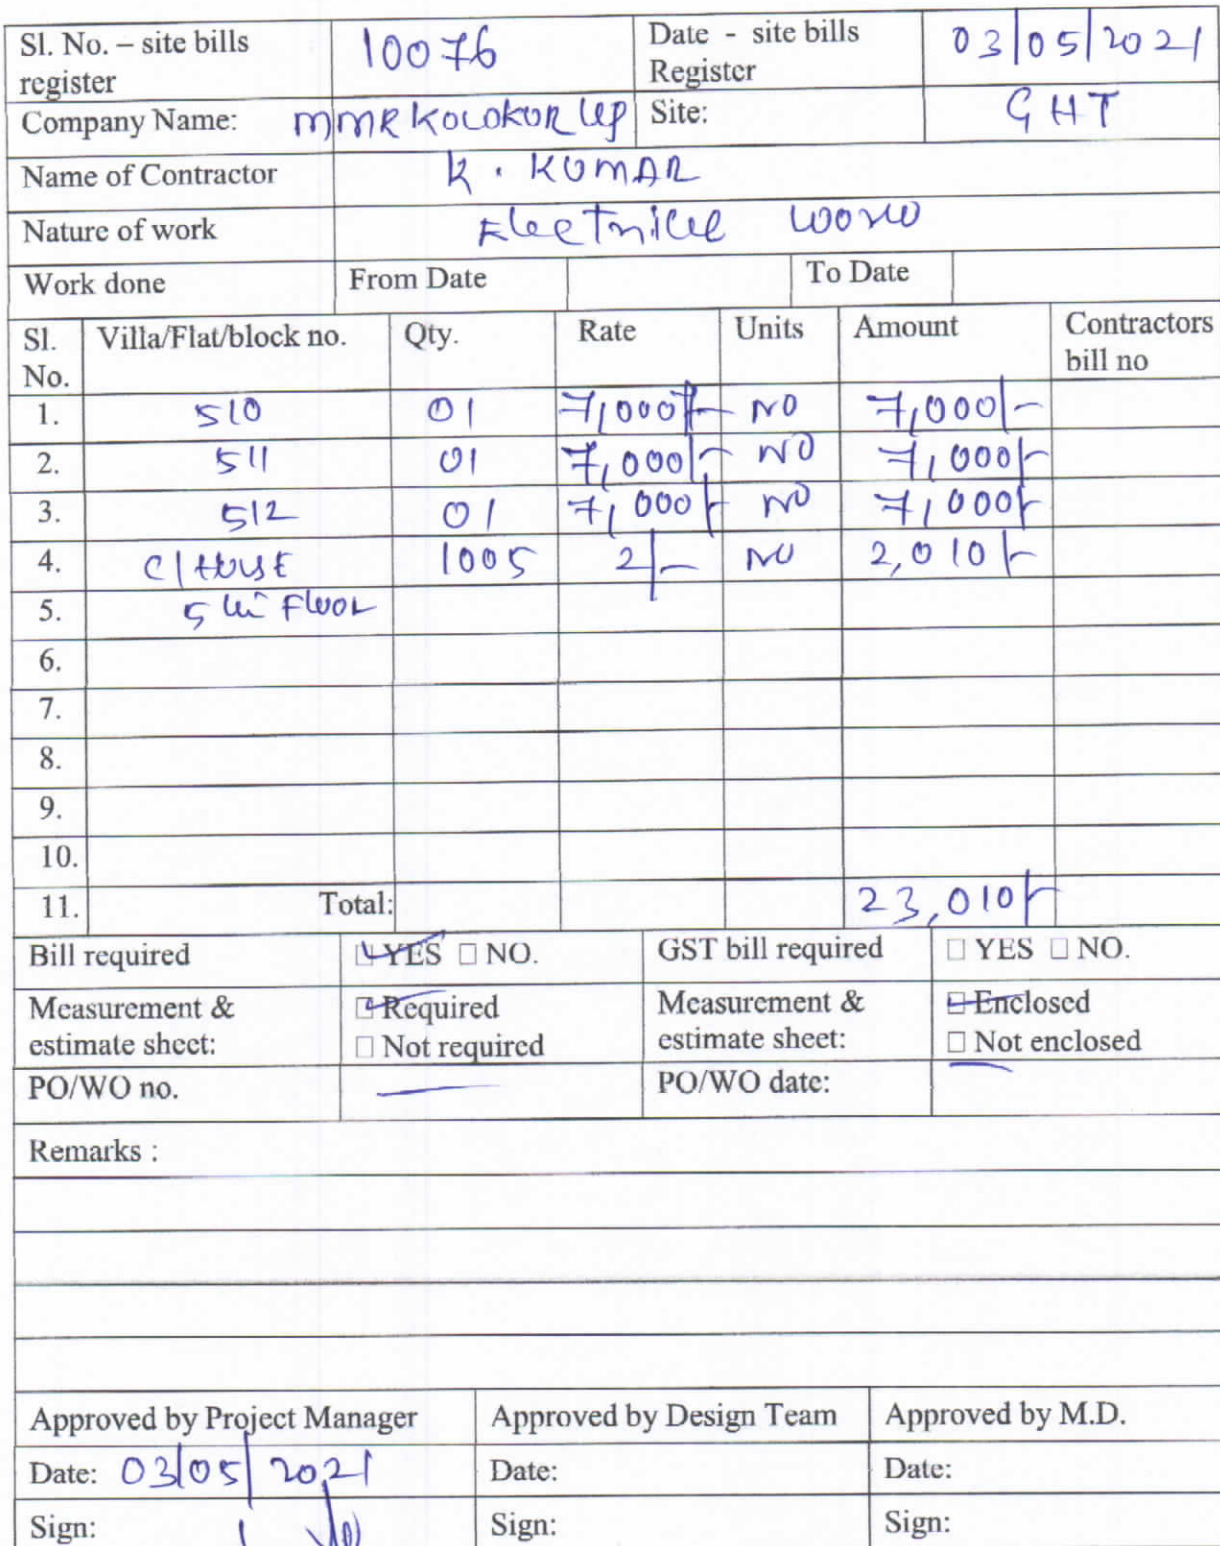 Sl. No. – site bills register 10076 Date - site bills Register 03/05/2021
Company Name: MMR KOLOKUR LLP Site: GHT
Name of Contractor K. KUMAR
Nature of work Electrical
Work done From Date To Date
Sl. No. Villa/Flat/block no. Qty. Rate Units Amount Contractors bill no
1. 510 01 7,000/- NO 7,000/-
2. 511 01 7,000/- NO 7,000/-
3. 512 01 7,000/- NO 7,000/-
4. C/HOUSE 1005 2/- NO 2,010/-
5. 5th Floor
6.
7.
8.
9.
10.
11. Total: 23,010/-
Bill required ☑ YES □ NO. GST bill required □ YES □ NO.
Measurement & estimate sheet: ☑ Required □ Not required Measurement & estimate sheet: ☑ Enclosed □ Not enclosed
PO/WO no. — PO/WO date: —
Remarks :
Approved by Project Manager Approved by Design Team Approved by M.D.
Date: 03/05/2021 Date: Date:
Sign: Sign: Sign: